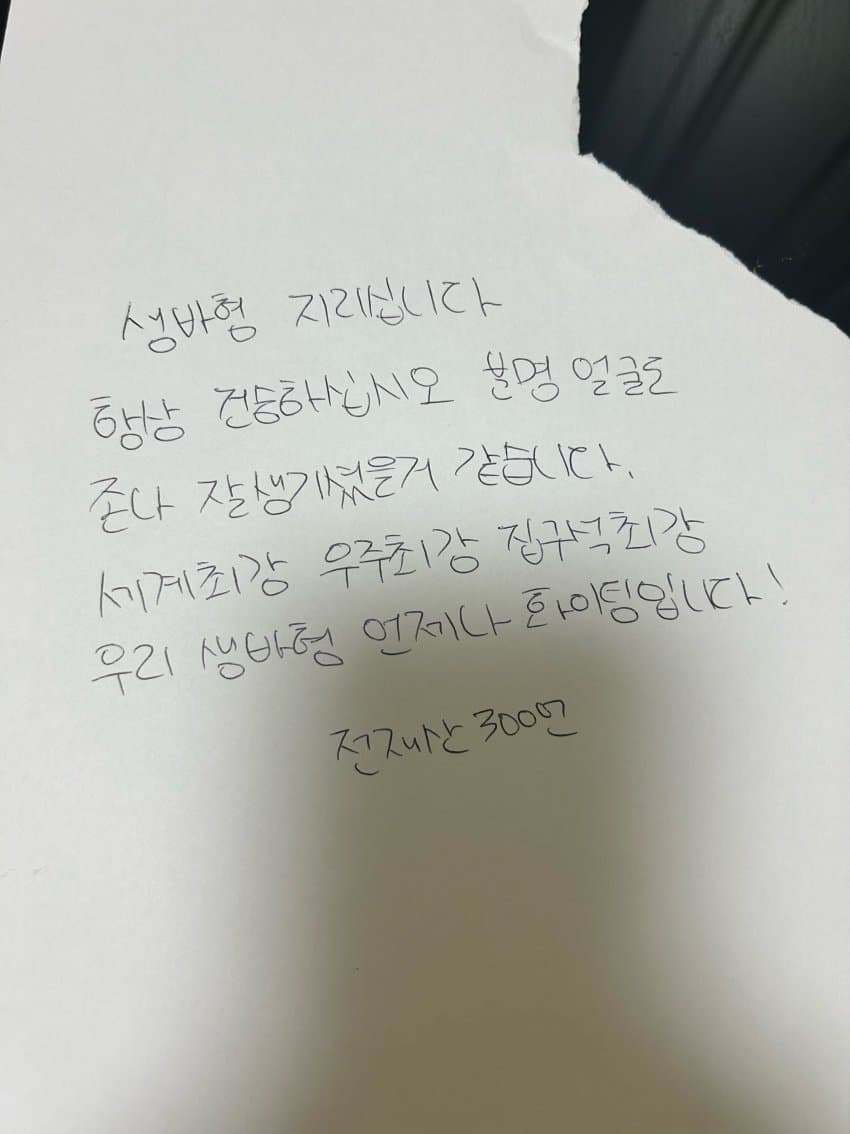 생바형 지리십니다
항상 건승하십시오 분명 얼굴도
존나 잘생기셨을거 같습니다.
세계최강 우주최강 집구석최강
우리 생바형 언제나 화이팅입니다!
전재산 300언